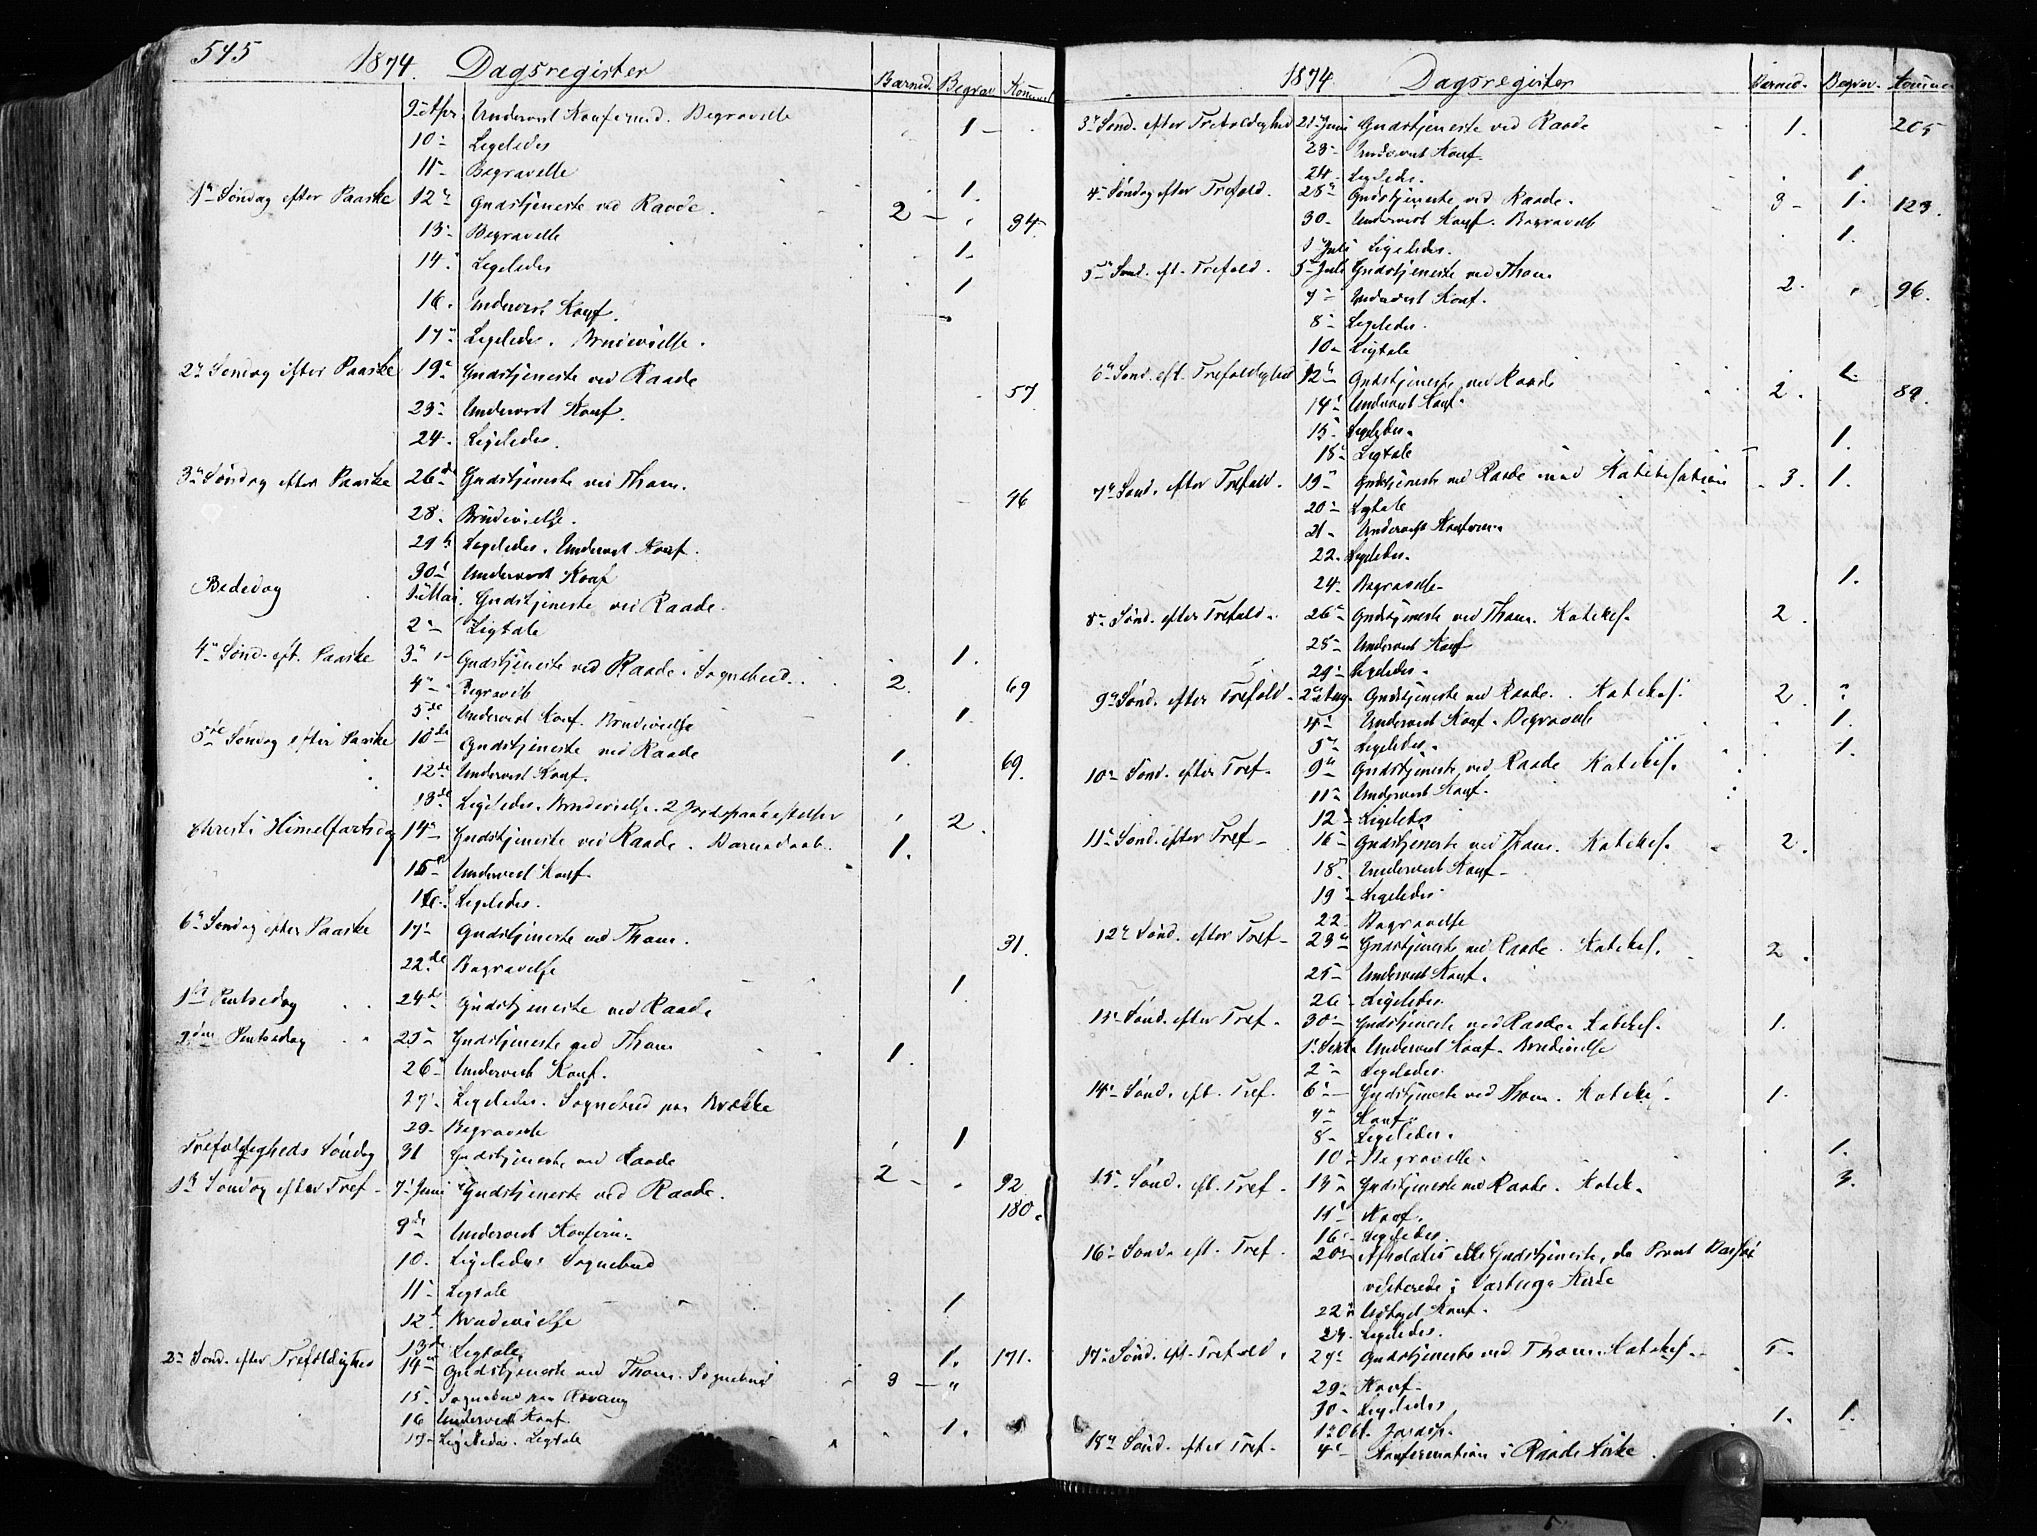 545
1874. Dagsregister Barned. Begrav
9de Apr. Undervist Konfirmd. Begravelse 1
10 Ligeledes
11 Begravelse 1.
1ste Søndag efter Paaske 12te Gudstjeneste ved Raade. 2 34
13 Begravelse 1.
14 Ligeledes 1
16. Undervist Konf.
17 Ligeledes. Brudevielse.
2den Søndag efter Paaske 19de Gudstjeneste ved Raade 57
23 Undervist Konf.
24. Ligeledes.
3die Søndag efter Paaske 26de Gudstjeneste ved Thom. 46
28. Brudevielse.
29 Ligeledes. Undervist Konf.
30 Undervist Konf
Bededag 1 Mai. Gudstjeneste ved Raade.
2 Ligtale
4de Sønd. eft. Paaske 3 Gudstjeneste ved Raade. Sognebud. 2. 1. 69
4 Begravelse
5de Undervist Konf. Brudevielse 1.
5te Søndag efter Paaske 10de Gudstjeneste ved Raade 1. 69.
12de Undervist Konf.
13de Ligeledes. Brudevielse. 2 Jordspaakastelser 2.
Christi Himelfartsdag 14 Gudstjeneste ved Raade. Barnedaab. 1.
15 Undervist Konf.
16 Ligeledes.
6te Søndag efter Paaske 17 Gudstjeneste ved Thom. 31.
22de Begravelse 1
1ste Pintsedag 24de Gudstjeneste ved Raade
2den Pintsedag 25 Gudstjeneste ved Thom 1.
26 Undervist Konf.
27 Ligeledes. Sognebud paa
29 Begravelse 1
Trefoldigheds Søndag 31 Gudstjeneste ved Raade 2 92
1ste Søndag efter Tref 7 Juni Gudstjeneste ved Raade. 180.
9de Undervist Konfirm.
10. Ligeledes Sognebud
11 Ligtale 1
12 Brudevielse
13de Ligtale 1.
2den Sønd. efter Trefoldighed 14de Gudstjeneste ved Thom. Sognebud 3 " 171.
15. Sognebud paa
16 Undervist Konf.
17 Ligeledes. Ligtale 1.
1874. Dagsregister Barned. Begrav.
3die Sønd. efter Trefoldighed 21 Juni Gudstjeneste ved Raade 1. 205
23 Undervist Konf.
24 Ligeledes. 1.
4de Søndag efter Trefold. 28de Gudstjeneste ved Raade. 3 1. 123.
30 Undervist Konf. Begravelse 1.
1 Juli Ligeledes.
5te Sønd. eft. Trefold. 5 Juli Gudstjeneste ved Thom 2. 96.
7 Undervist Konf.
8 Ligeledes.
10 Ligtale 1.
6te Sønd. eft. Trefoldighed 12te Gudstjeneste ved Raade 2. 89.
14 Undervist Konf.
15 Ligeledes.
18 Ligtale 1.
7de Sønd. efter Trefold. 19 Gudstjeneste ved Raade med Katekisation 3. 1.
20 Ligtale
21 Undervist Konfirm.
22. Ligeledes.
24. Begravelse 1.
8de Sønd. efter Trefold. 26de Gudstjeneste ved Thom. Katekis. 2.
28 Undervist Konf
29 Ligeledes
9de Sønd. efter Trefold. 2den Aug. Gudstjeneste ved Raade. Katekis. 2 "
4 Undervist Konf. Begravelse 1.
5 Ligeledes. 1.
10de Sønd. efter Tref. 9de Gudstjeneste ved Raade Katekis.
11 Undervist Konf.
12 Ligeledes
11te Sønd. efter Tref 16 Gudstjeneste ved Thom. Katekis. 2.
18 Undervist Konf.
19 Ligeledes
22 Begravelse
12te Sønd. efter Tref 23de Gudstjeneste ved Raade. Katekis. 2.
25 Undervist Konf.
26 Ligeledes.
13 Sønd. efter Tref. 30 Gudstjeneste ved Raade. Katekis. 1.
1 Septb. Undervist Konf. Brudevielse
2 Ligeledes.
14 Sønd. eft. Tref. 6 Gudstjeneste ved Thom. Katekis. 1.
7 Konf.
8 Ligeledes.
10 Begravelse 1.
15 Sønd. eft. Tref 13 Gudstjeneste ved Raade. Katek. 3.
15 Konf.
16 Ligeledes.
16 Sønd. eft. Tref. 20 Gudstjeneste, da Provst
visiterede i Kirke
22 Konf.
23. Ligeledes.
17 Sønd. eft. Trefold. 27 Gudstjeneste ved Thom. Katekis. 5
29 Konf.
30 Ligeledes,
1 Obt. Jordsp. 1. 1.
18de Sønd. efter Tref. 4de Konfirmation i Raade Kirke.